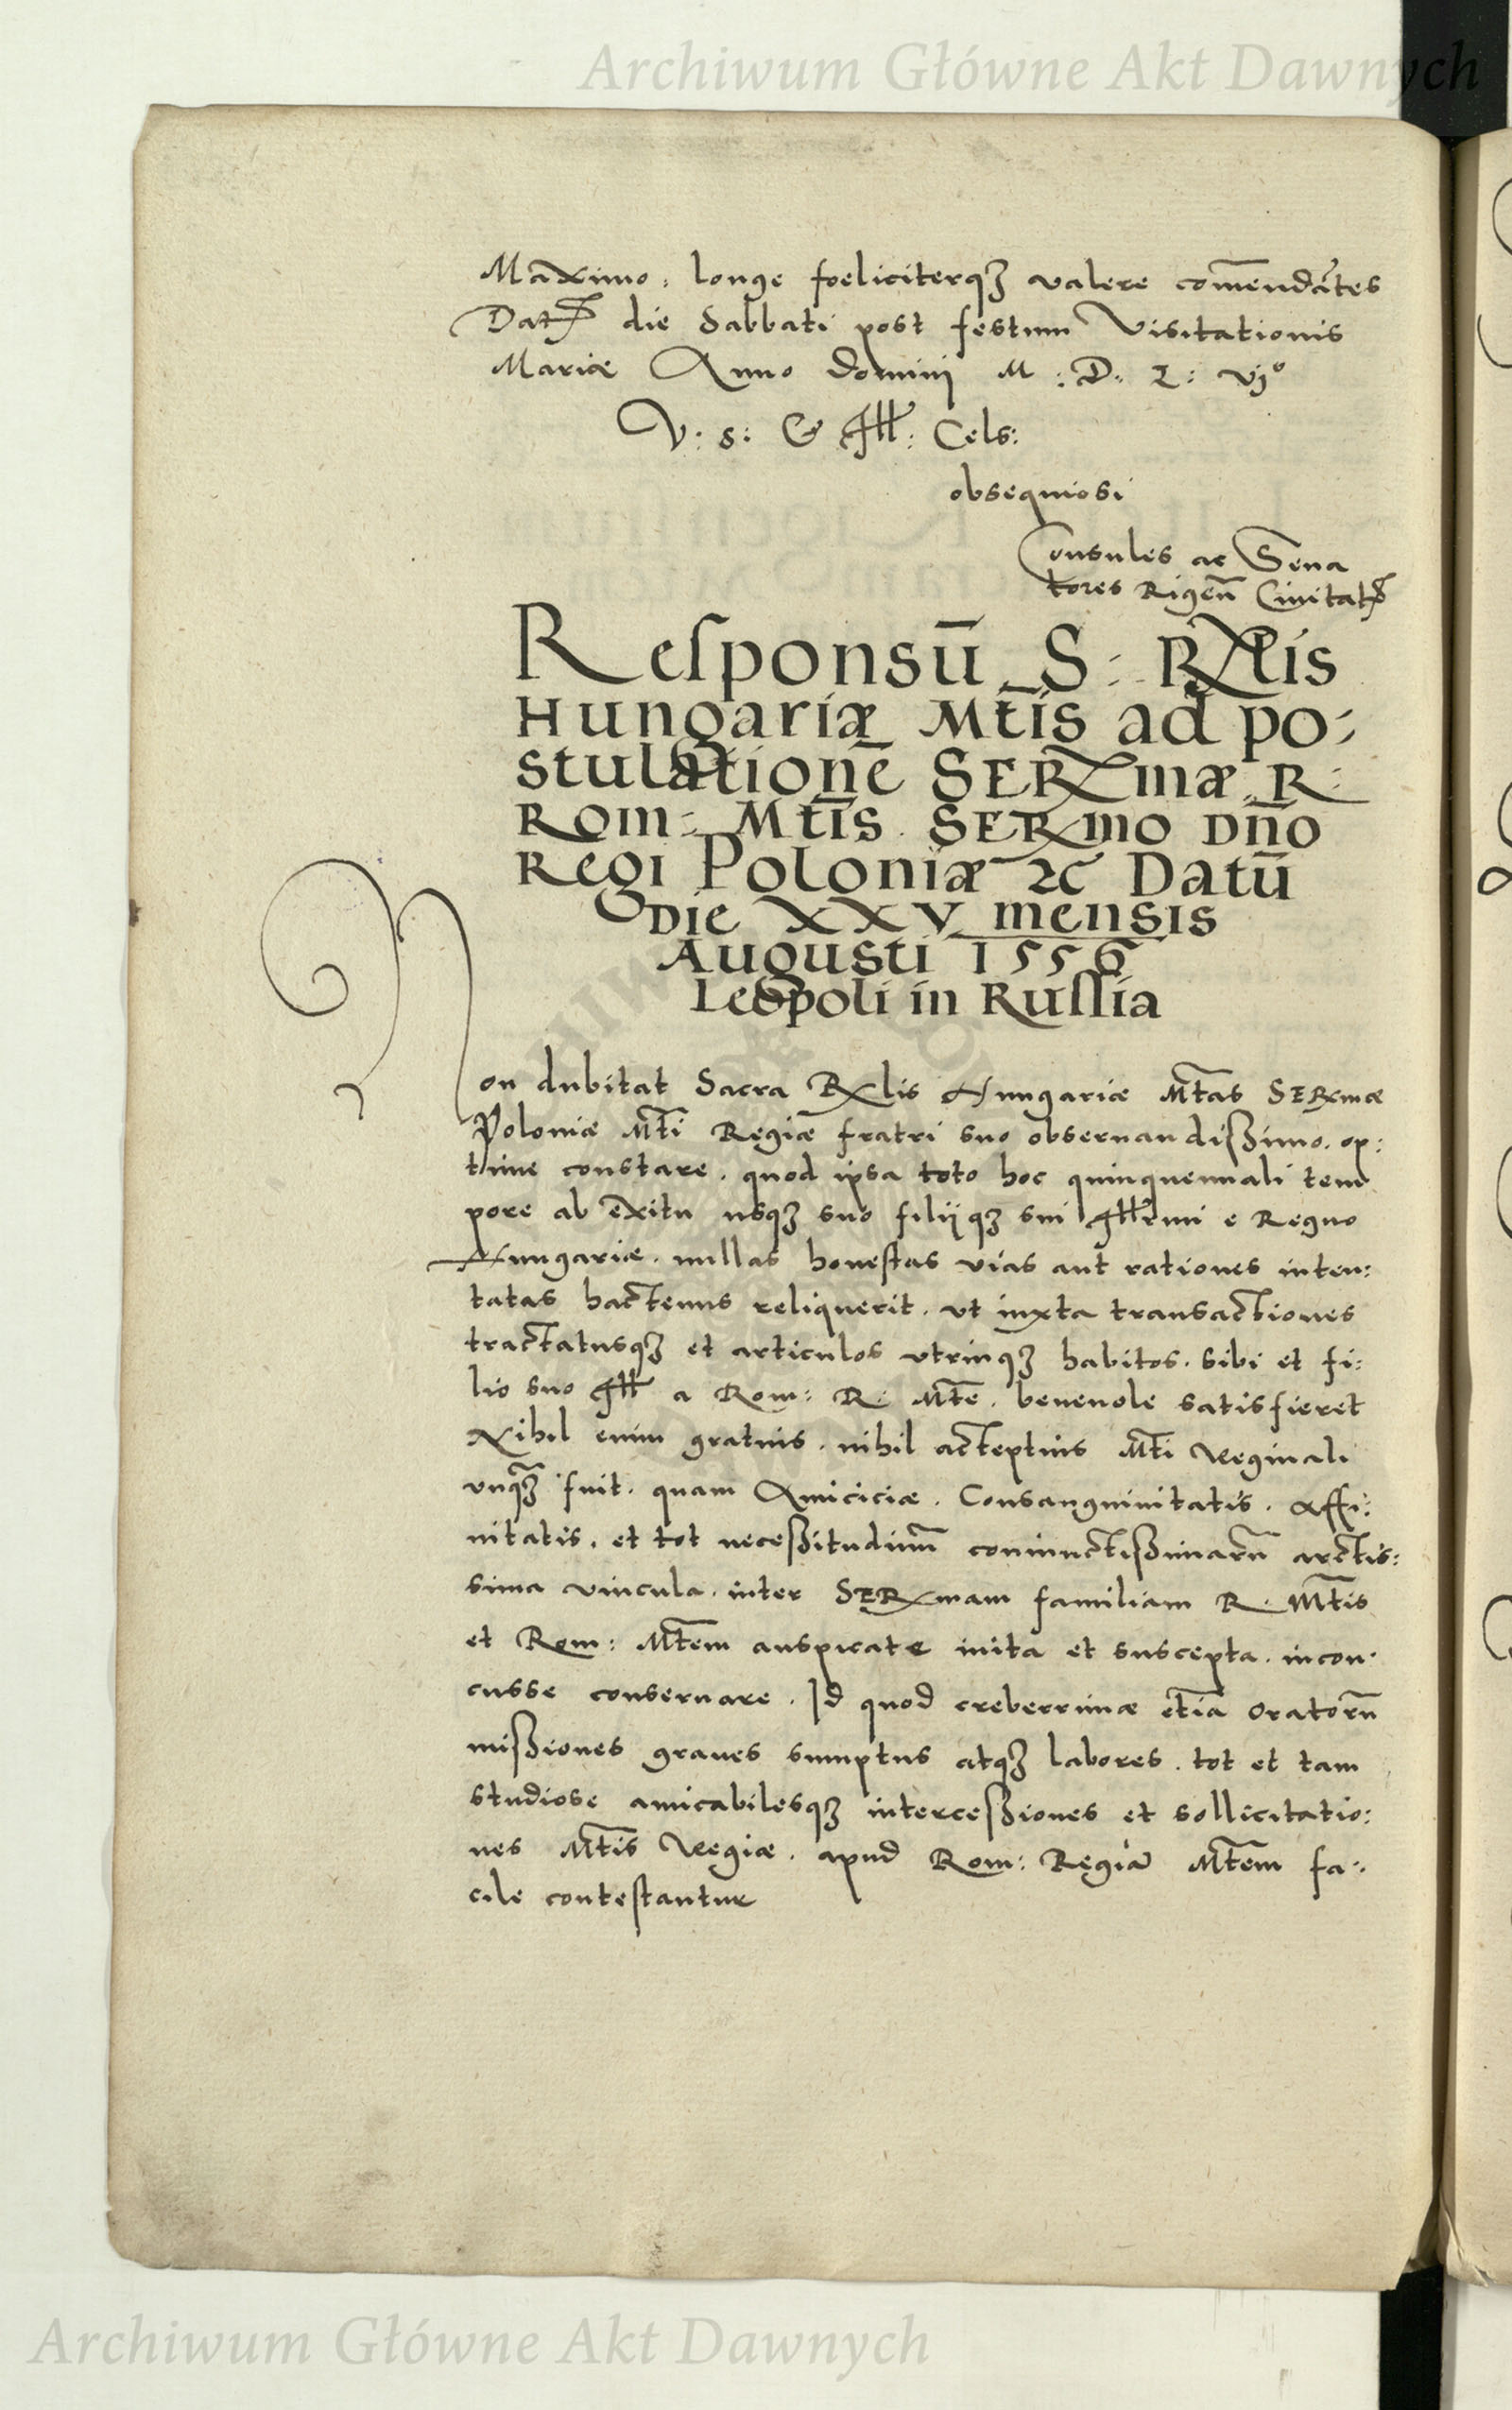 Archiwum Główne Akt Dawnych
Maximo, longe foeliciterqꝫ valere com̄endātes
Dat die Sabbati post festum Visitationis
Mariæ Anno Domini M : D : L : vjº
V : S : & Ill : Cels:
obsequiosi
Consules ac Sena
tores Rigen̄ Ciuitat
Responsū S : Rlis
Hungariæ Mt̄is ad po-
stulationē SERmæ R :
Rom : Mt̄is SERmo Dn̄o
Regi Poloniæ 2c Datū
Die XXV mensis
Augusti 1556
Leopoli in Russia
Non dubitat Sacra Rlis Hungariæ Mt̄as SERmæ
Poloniæ Mt̄i Regiæ fratri suo obseruandißimo. op:
time constare. quod ipsa toto hoc quinquennali tem
pore ab exitu usqꝫ suo filijqꝫ sui Illrmi e Regno
Hungariæ. nullas honestas vias aut rationes inten:
tatas hactenus reliquerit. vt iuxta transactiones
tractatusqꝫ et articulos vtrinqꝫ habitos. sibi et fi:
lio suo Ill a Rom: R: Mt̄e. beneuole satisfieret
Nihil enim gratius. nihil acteptius Mt̄i Reginali
vnqꝫ fuit. quam Amiciciæ. Consanguinitatis. Affi:
nitatis. et tot neceßitudinū coniunctißimarū arctis:
sima vincula. inter SERmam familiam R. Mt̄is
et Rom: Mt̄em auspicate inita et suscepta. incon-
cusse conseruare. Id quod creberrimæ etiā Oratorū
mißiones graues sumptus atqꝫ labores. tot et tam
studiose amicabilesqꝫ interceßiones et sollicitatio:
nes Mt̄is Regiæ. apud Rom: Regiā Mt̄em fa:
cile contestantur
Archiwum Główne Akt Dawnych